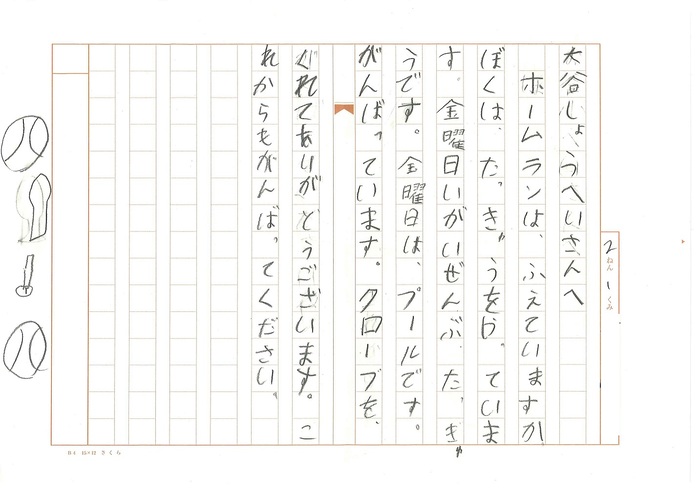 2ねん1くみ
大谷しょうへいさんへ
ホームランは、ふえていますか
ぼくは、たっきゅうをやっていま
す。金曜日いがいぜんぶ、たっきゅ
うです。金曜日は、プールです。
がんばっています。グローブを、
くれてありがとうございます。こ
れからもがんばってください。
さくら